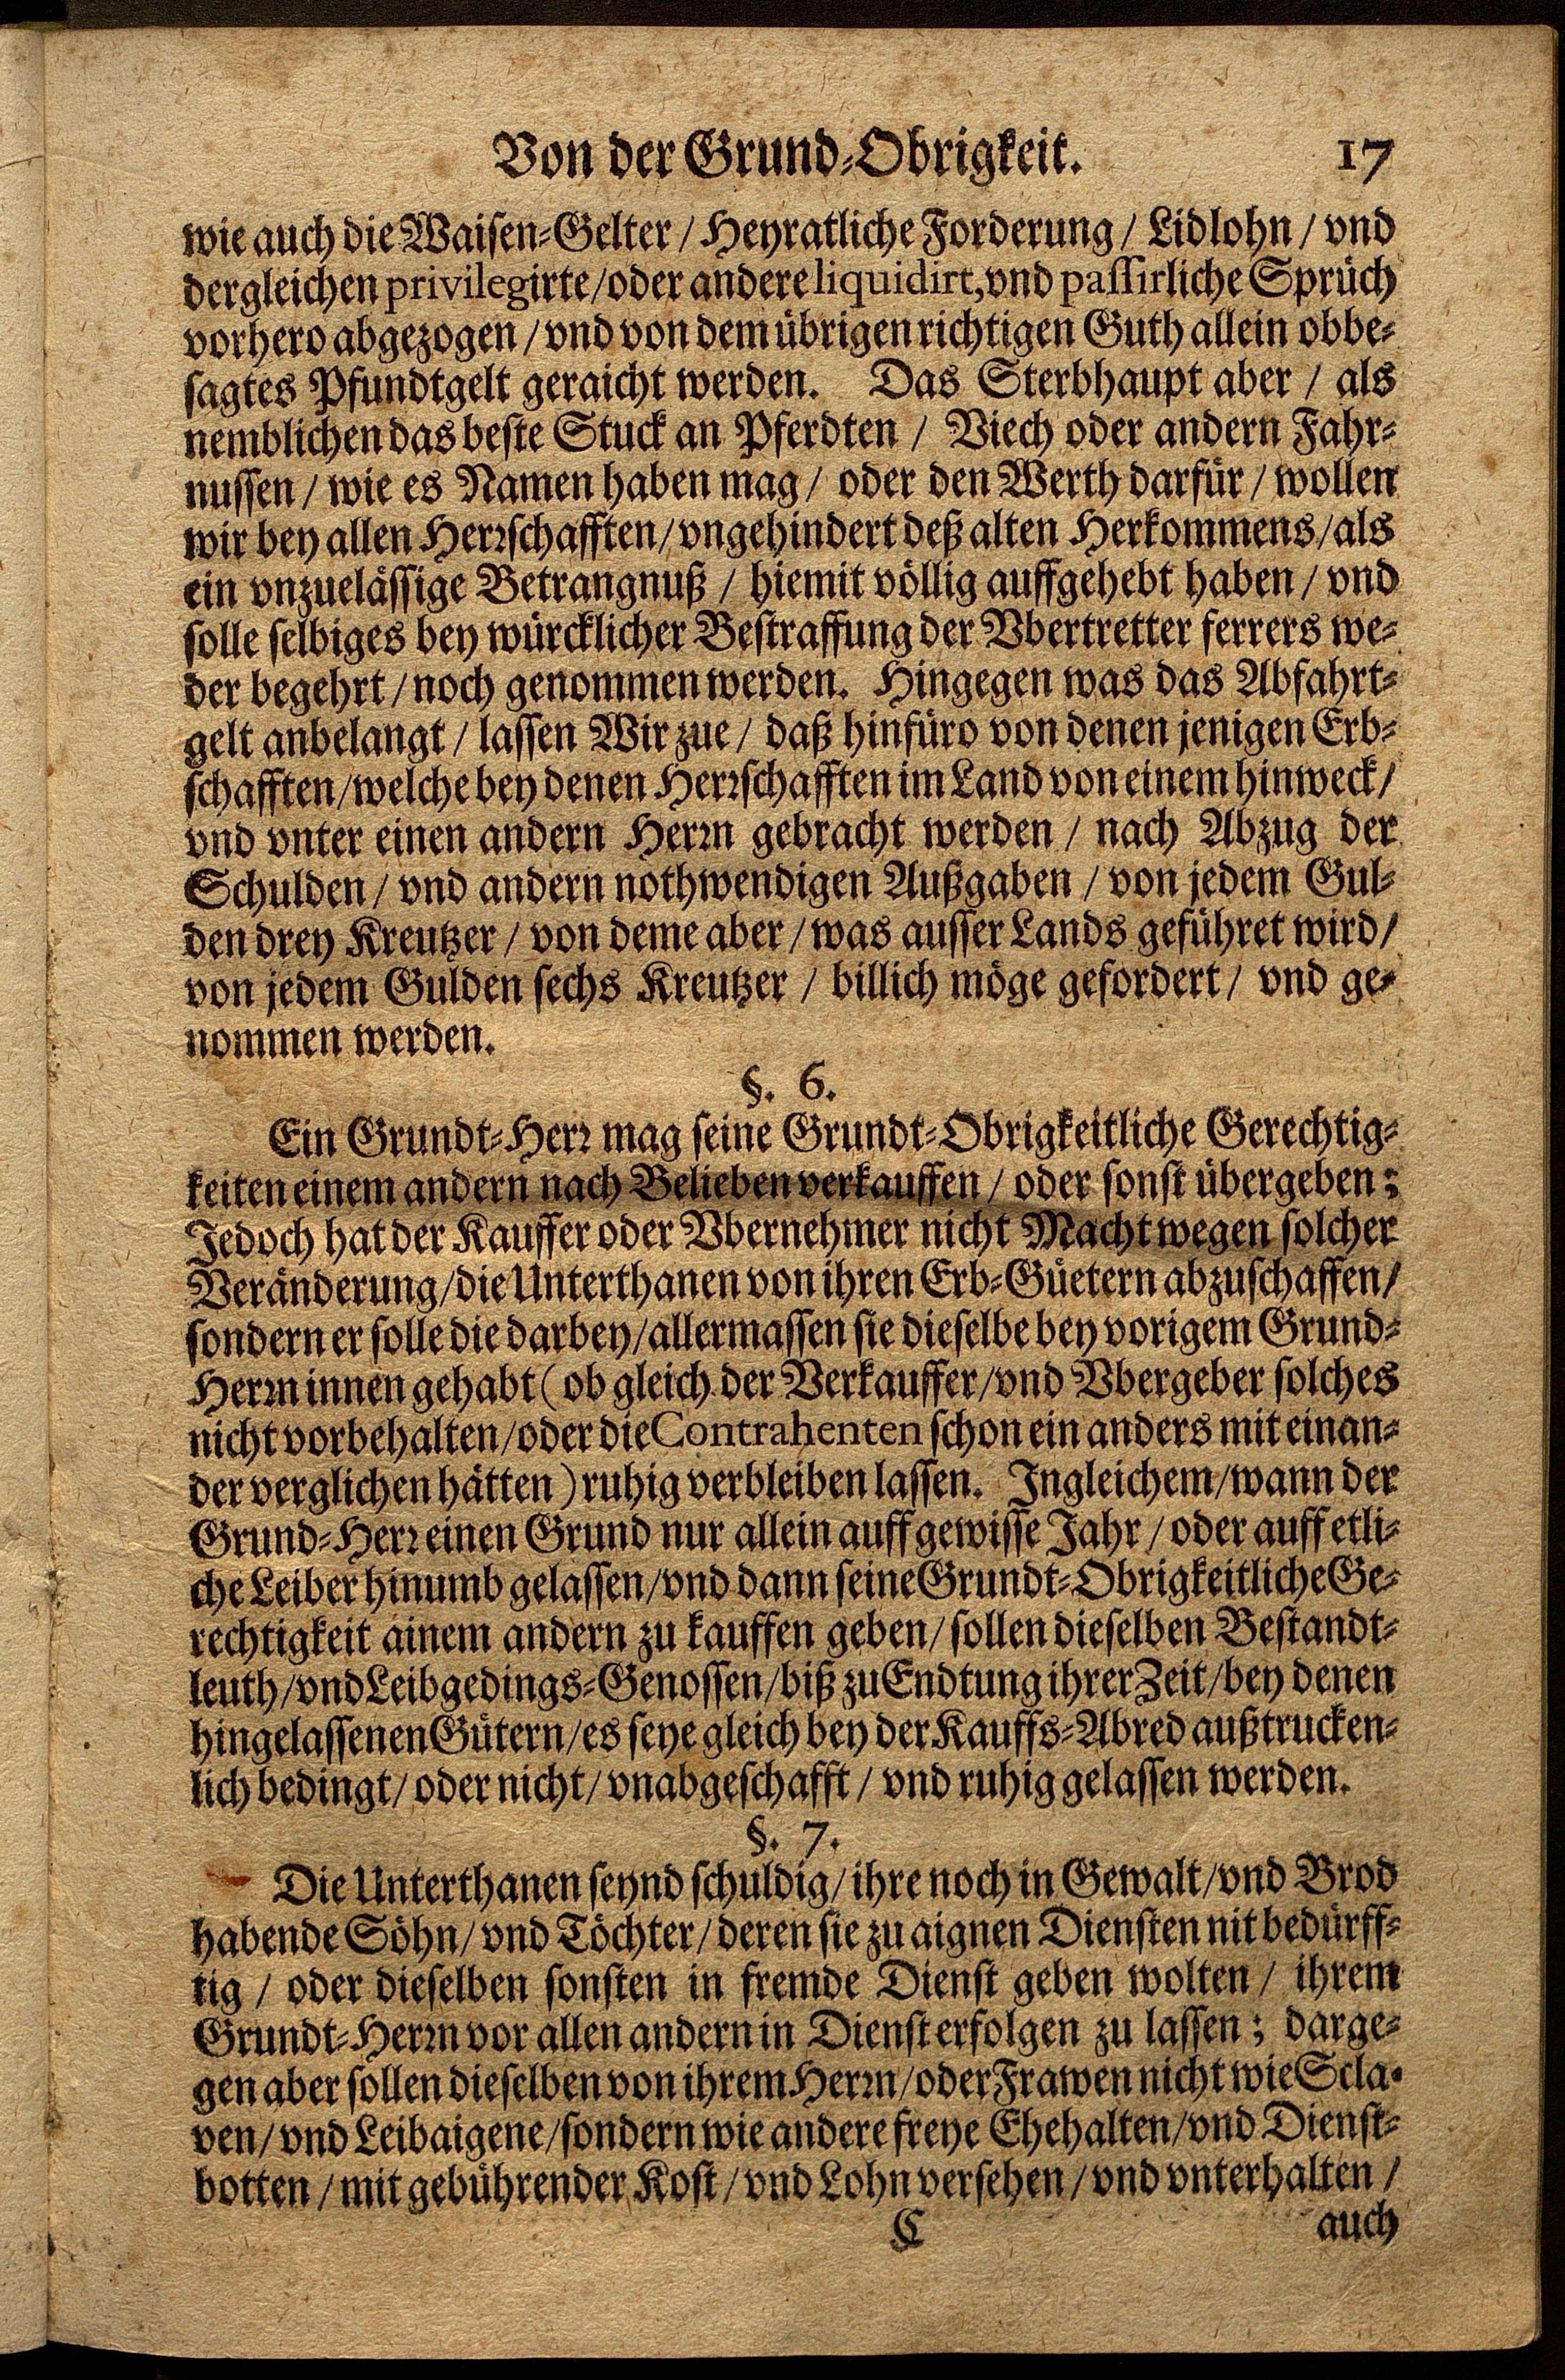 Von der Grund-Obrigkeit. 17
wie auch die Waisen-Gelter / Heyratliche Forderung / Lidlohn / vnd
dergleichen privilegirte / oder andere liquidirt, vnd passirliche Sprüch
vorhero abgezogen / vnd von dem übrigen richtigen Guth allein obbe-
sagtes Pfundtgelt geraicht werden. Das Sterbhaupt aber / als
nemblichen das beste Stuck an Pferdten / Viech oder andern Fahr-
nussen / wie es Namen haben mag / oder den Werth darfür / wollen
wir bey allen Herrschafften / vngehindert deß alten Herkommens / als
ein vnzuelässige Betrangnuß / hiemit völlig auffgehebt haben / vnd
solle selbiges bey würcklicher Bestraffung der Vbertretter ferrers we-
der begehrt / noch genommen werden. Hingegen was das Abfahrt-
gelt anbelangt / lassen Wir zue / daß hinfüro von denen jenigen Erb-
schafften / welche bey denen Herrschafften im Land von einem hinweck /
vnd vnter einen andern Herrn gebracht werden / nach Abzug der
Schulden / vnd andern nothwendigen Außgaben / von jedem Gul-
den drey Kreutzer / von deme aber / was ausser Lands geführet wird /
von jedem Gulden sechs Kreutzer / billich möge gefordert / vnd ge-
nommen werden.
§. 6.
Ein Grundt-Herr mag seine Grundt-Obrigkeitliche Gerechtig-
keiten einem andern nach Belieben verkauffen / oder sonst übergeben;
Jedoch hat der Kauffer oder Vbernehmer nicht Macht wegen solcher
Veränderung / die Unterthanen von ihren Erb-Güetern abzuschaffen /
sondern er solle die darbey / allermassen sie dieselbe bey vorigem Grund-
Herrn innen gehabt ( ob gleich der Verkauffer / vnd Vbergeber solches
nicht vorbehalten / oder die Contrahenten schon ein anders mit einan-
der verglichen hätten ) ruhig verbleiben lassen. Ingleichem / wann der
Grund-Herr einen Grund nur allein auff gewisse Jahr / oder auff etli-
che Leiber hinumb gelassen / vnd dann seine Grundt-Obrigkeitliche Ge-
rechtigkeit ainem andern zu kauffen geben / sollen dieselben Bestandt-
leuth / vnd Leibgedings-Genossen / biß zu Endtung ihrer Zeit / bey denen
hingelassenen Gütern / es seye gleich bey der Kauffs-Abred außtrucken-
lich bedingt / oder nicht / vnabgeschafft / vnd ruhig gelassen werden.
§. 7.
Die Unterthanen seynd schuldig / ihre noch in Gewalt / vnd Brod
habende Söhn / vnd Töchter / deren sie zu aignen Diensten nit bedürff-
tig / oder dieselben sonsten in fremde Dienst geben wolten / ihrem
Grundt-Herrn vor allen andern in Dienst erfolgen zu lassen; darge-
gen aber sollen dieselben von ihrem Herrn / oder Frawen nicht wie Scla-
ven / vnd Leibaigene / sondern wie andere freye Ehehalten / vnd Dienst-
botten / mit gebührender Kost / vnd Lohn versehen / vnd vnterhalten /
C auch